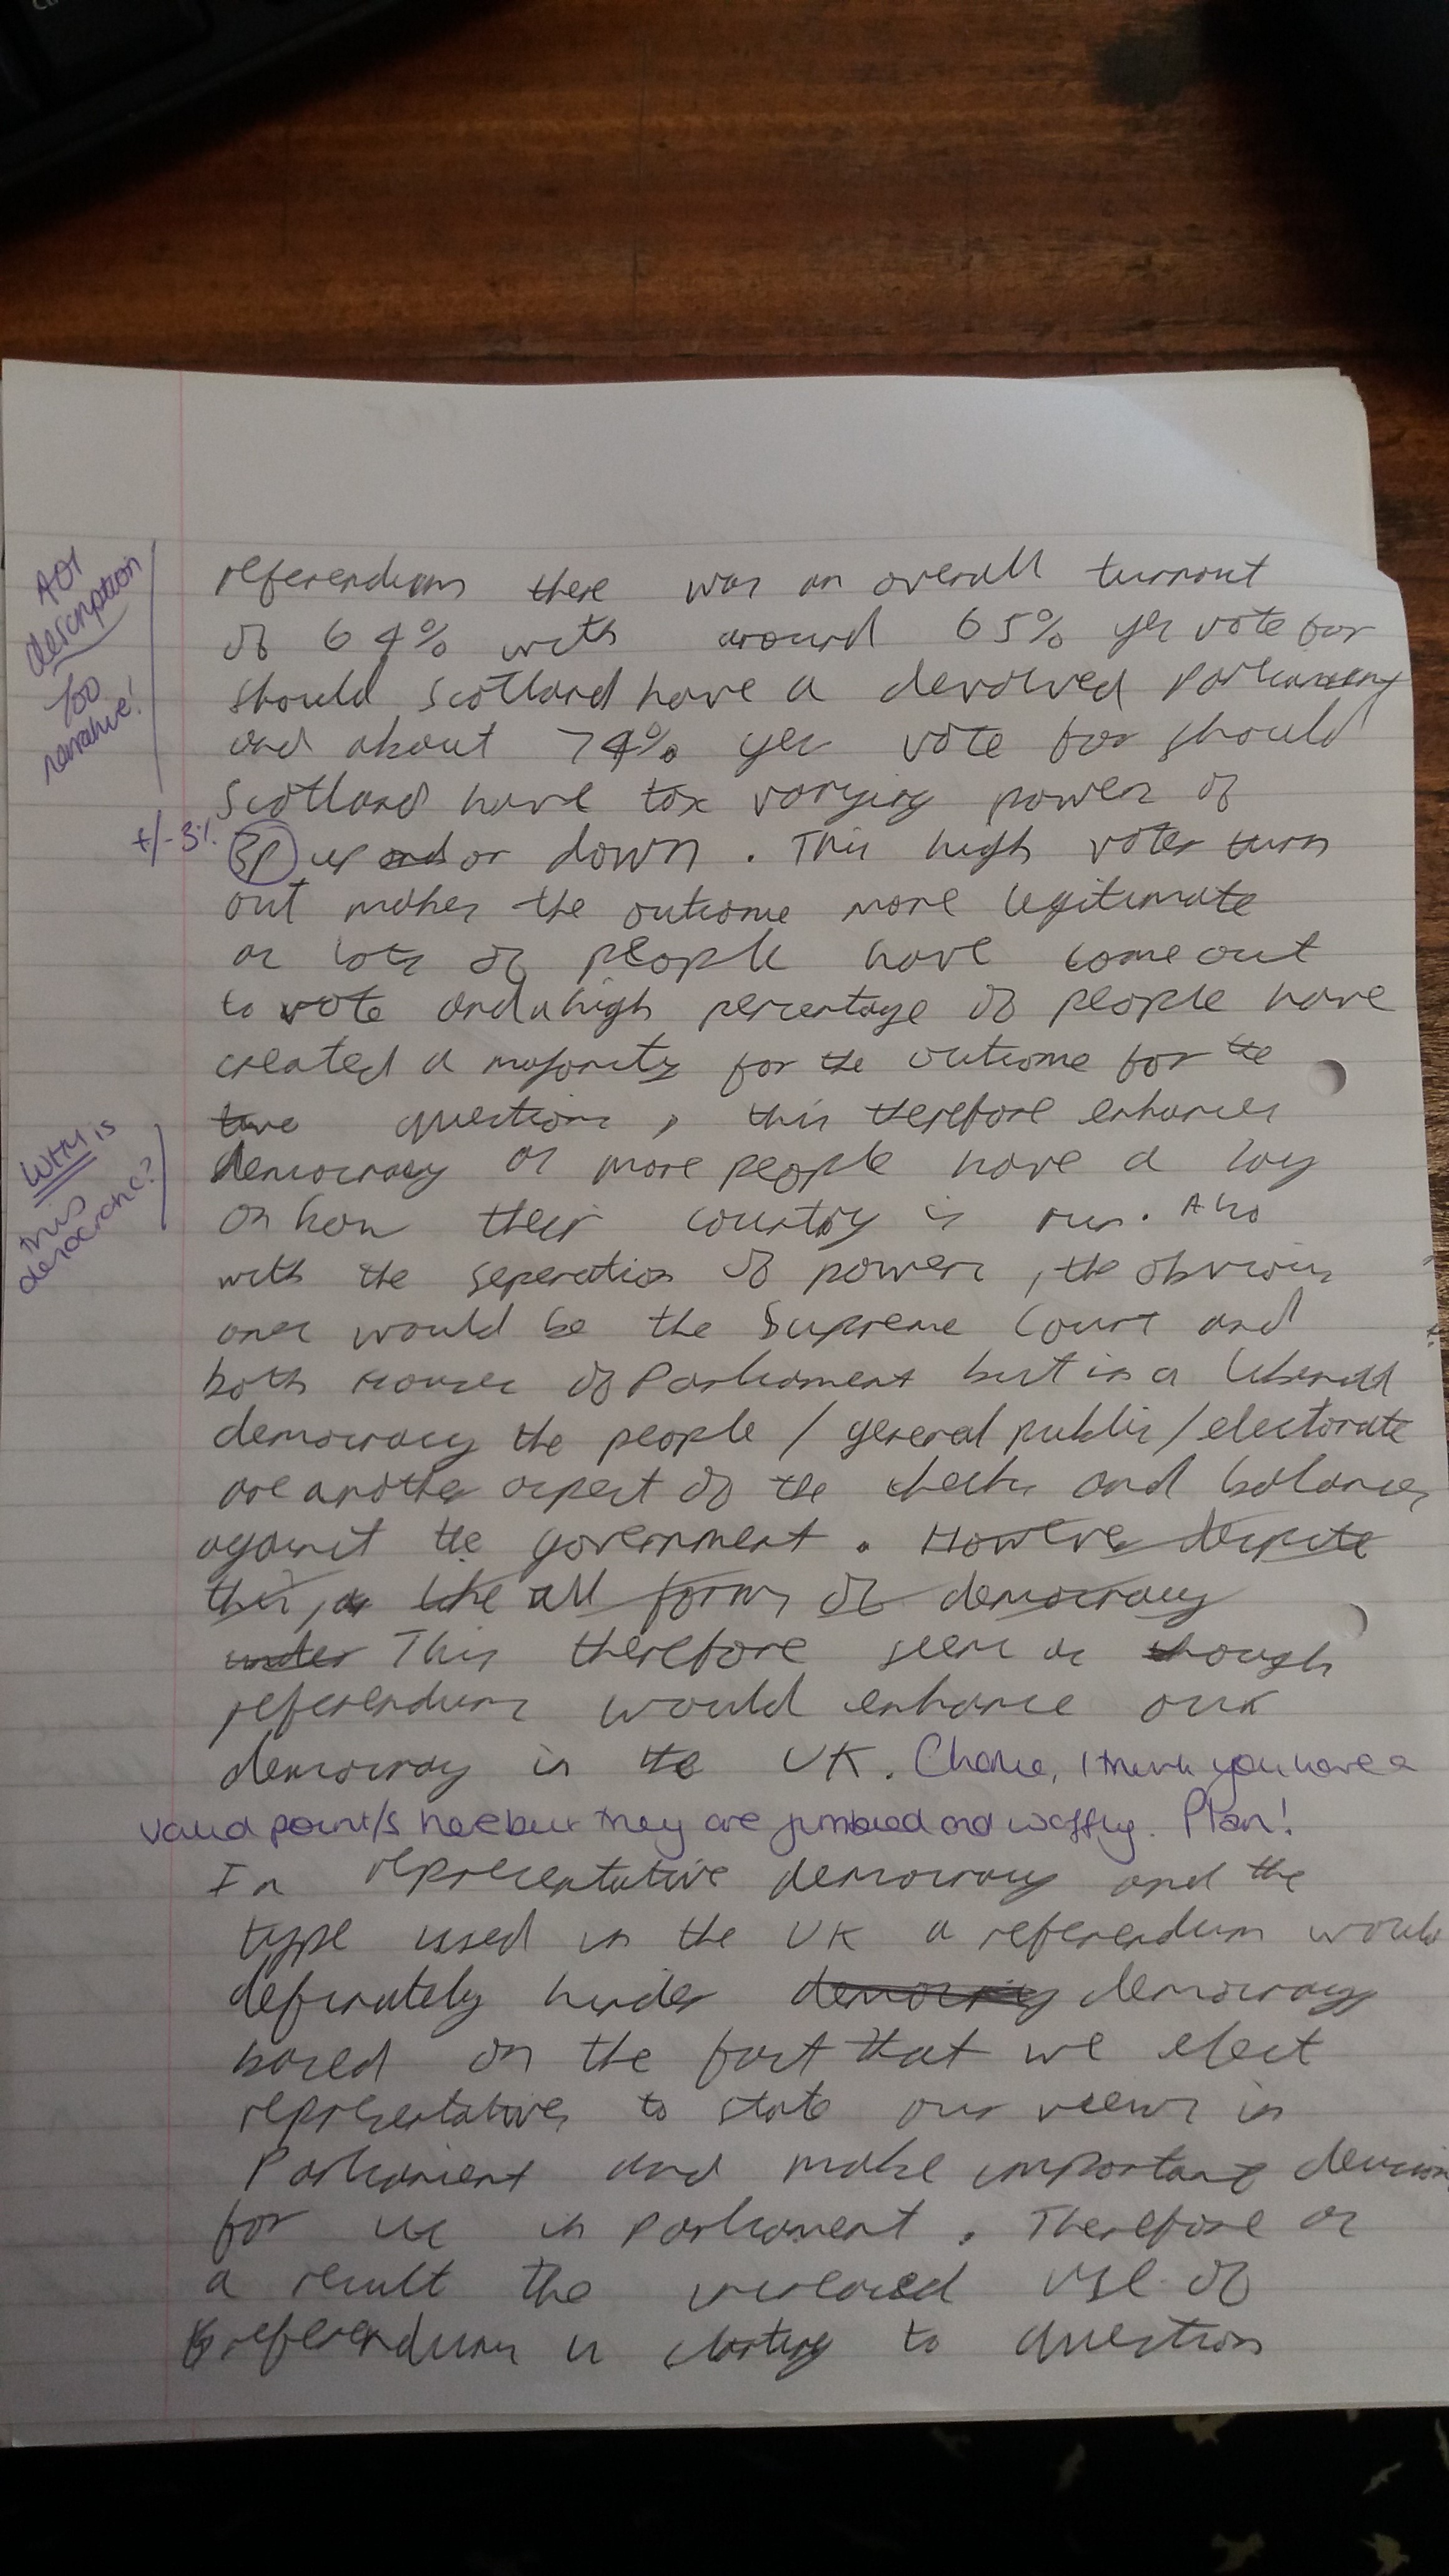 AO1
description
Too
narrative!
referendum there was an overall turnout
of 64% with around 65% yes vote for
should Scotland have a devolved Parliament
and about 74% yes vote for should
Scotland have tax varying power of
+/- 3%
3p up and or down. This high voter turn
out makes the outcome more legitimate
as lots of people have come out
to vote and a high percentage of people have
created a majority for the outcome for the
two questions, this therefore enhances
WHY is
this
democratic?
democracy as more people have a say
on how their country is run. Also
with the seperation of powers, the obvious
ones would be the Supreme Court and
both houses of Parliament but in a liberal
democracy the people / general public / electorate
are another aspect of the checks and balances
against the government. However despite
this, as like all forms of democracy
under This therefore seem as though
referendums would enhance our
democracy in the UK. I think you have a
valid point/s here but they are jumbled and waffly. Plan!
In representative democracy and the
type used in the UK a referendum would
definately hinder democracy democracy
based on the fact that we elect
representatives to state our views in
Parliament and make important decisions
for us in Parliament. Therefore as
a result the increased use of
referendums is starting to question